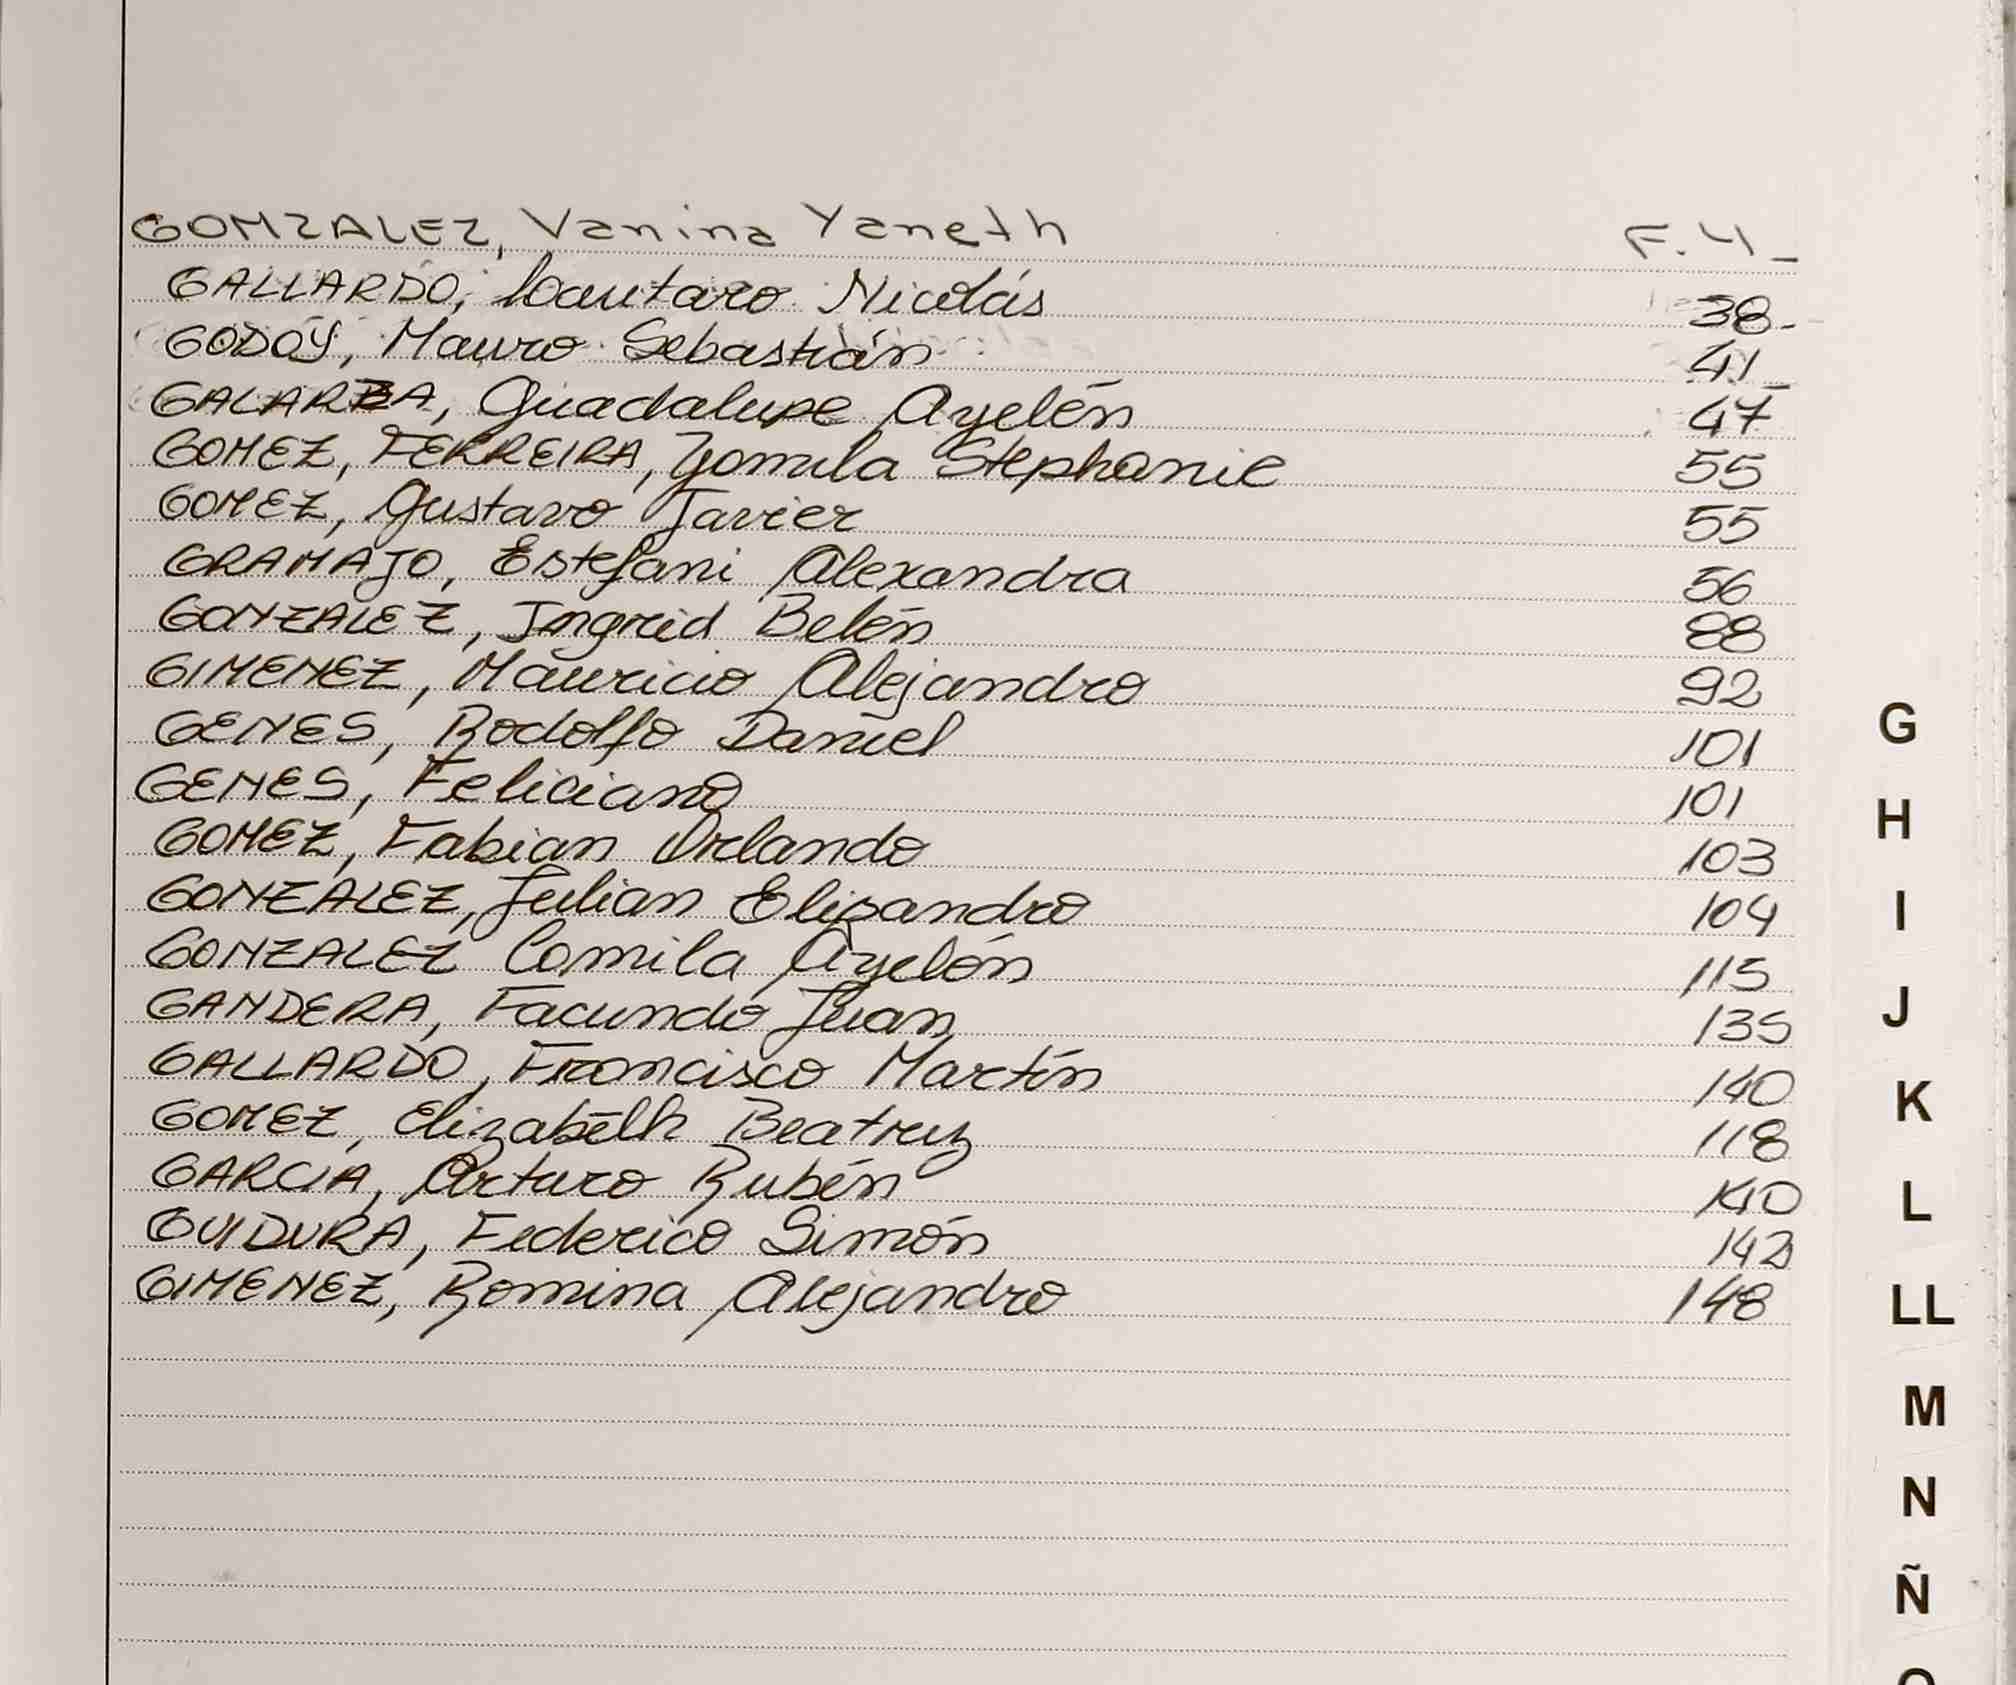 GONZALEZ, Vanina Yaneth F. 4_
GALLARDO, Lautaro Nicolás 38-
GODOY, Mauro Sebastián 41_
GALARZA, Guadalupe Ayelén 47
GOMEZ, FERREIRA, Yamila Stephanie 55
GOMEZ, Gustavo Javier 55
GRAMAJO, Estefani Alexandra 56
GONZALEZ, Ingrid Belén 88
GIMENEZ, Mauricio Alejandro 92
GENES, Rodolfo Daniel 101
GENES, Feliciano 101
GOMEZ, Fabian Orlando 103
GONZALEZ, Julian Elisandro 104
GONZALEZ Camila Ayelén 115
GANDERA, Facundo Juan 135
GALLARDO, Francisco Martín 140
GOMEZ, Elizabeth Beatriz 118
GARCIA, Arturo Rubén 140
GUIDURA, Federico Simón 142
GIMENEZ, Romina Alejandro 148
G
H
I
J
K
L
LL
M
N
Ñ